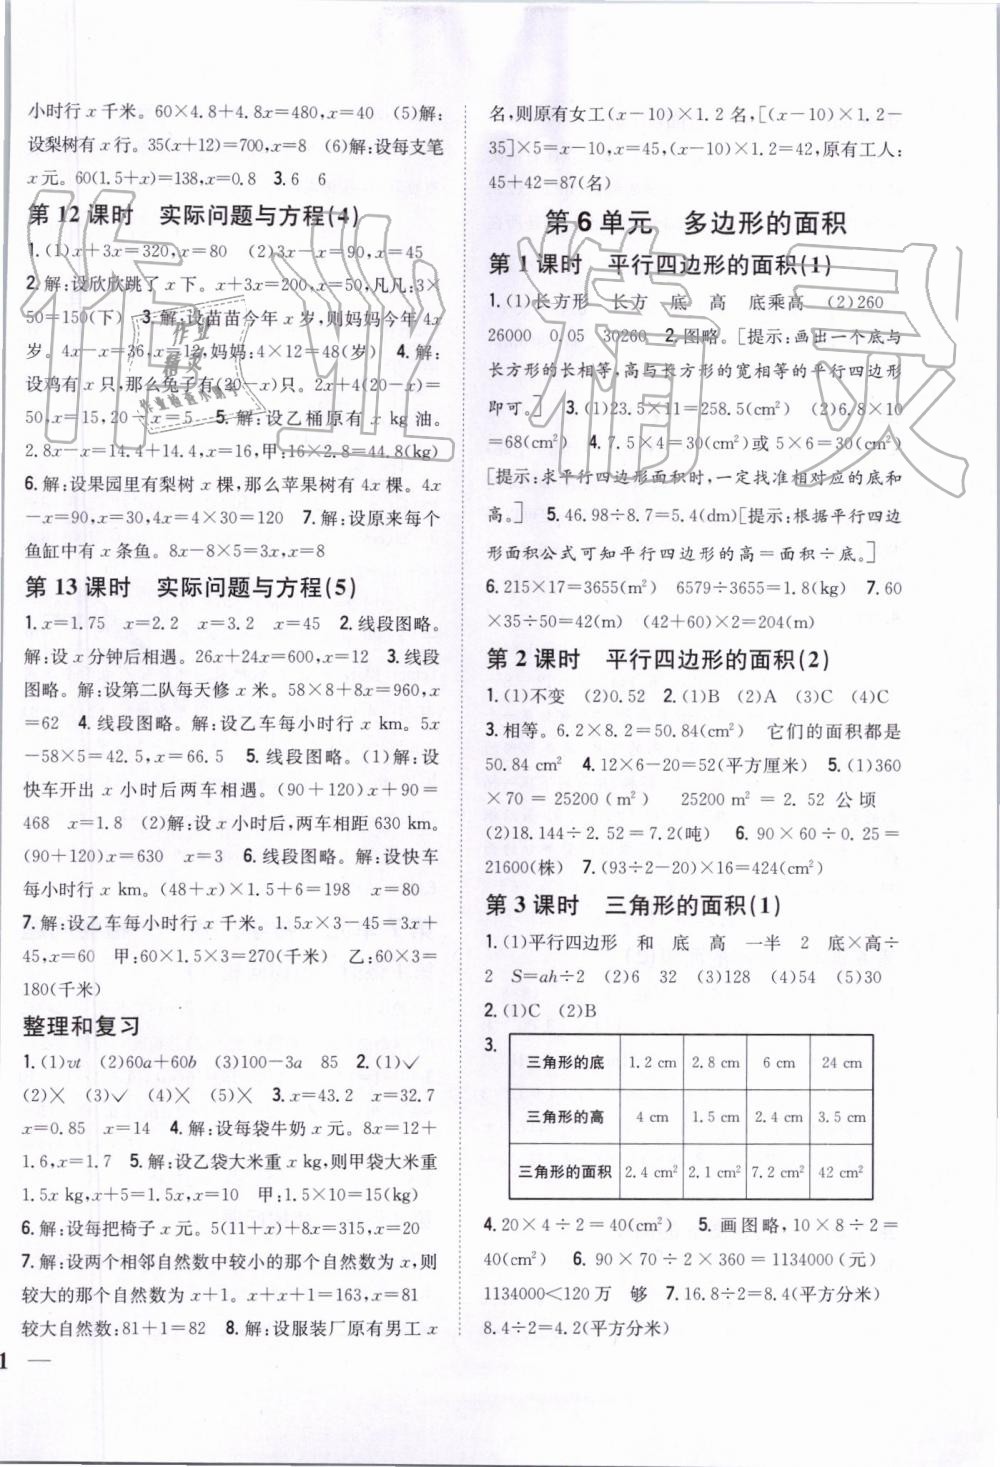 小时行 x 千米。60×4.8+4.8x=480,x=40 (5)解:
设梨树有 x 行。35(x+12)=700,x=8 (6)解:设每支笔
x 元。60(1.5+x)=138,x=0.8 3.6 6
第 12 课时 实际问题与方程(4)
1.(1)x+3x=320,x=80 (2)3x-x=90,x=45
2.解:设欣欣跳了 x 下。x+3x=200,x=50,凡凡:3×
50=150(下) 3.解:设苗苗今年 x 岁,则妈妈今年 4x
岁。4x-x=36,x=12,妈妈:4×12=48(岁) 4.解:
设鸡有 x 只,那么兔子有(20-x)只。2x+4(20-x)=
50,x=15,20÷x=5 5.解:设乙桶原有 x kg 油。
2.8x-x=14.4+14.4,x=16,甲:16×2.8=44.8(kg)
6.解:设果园里有梨树 x 棵,那么苹果树有 4x 棵。4x
-x=90,x=30,4x=4×30=120 7.解:设原来每个
鱼缸中有 x 条鱼。8x-8×5=3x,x=8
第 13 课时 实际问题与方程(5)
1.x=1.75 x=2.2 x=3.2 x=45 2.线段图略。
解:设 x 分钟后相遇。26x+24x=600,x=12 3.线段
图略。解:设第二队每天修 x 米。58×8+8x=960,x
=62 4.线段图略。解:设乙车每小时行 x km。5x
-58×5=42.5,x=66.5 5.线段图略。(1)解:设
快车开出 x 小时后两车相遇。(90+120)x+90=
468 x=1.8 (2)解:设 x 小时后,两车相距 630 km。
(90+120)x=630 x=3 6.线段图略。解:设快车
每小时行 x km。(48+x)×1.5+6=198 x=80
7.解:设乙车每小时行 x 千米。1.5x×3-45=3x+
45,x=60 甲:60×1.5×3=270(千米) 乙:60×3=
180(千米)
整理和复习
1.(1)vt (2)60a+60b (3)100-3a 85 2.(1)√
(2)× (3)√ (4)× (5)× 3.x=43.2 x=32.7
x=0.85 x=14 4.解:设每袋牛奶 x 元。8x=12+
1.6,x=1.7 5.解:设乙袋大米重 x kg,则甲袋大米重
1.5x kg,x+5=1.5x,x=10 甲:1.5×10=15(kg)
6.解:设每把椅子 x 元。5(11+x)+8x=315,x=20
7.解:设两个相邻自然数中较小的那个自然数为 x,则
较大的那个自然数为 x+1。x+x+1=163,x=81
较大自然数:81+1=82 8.解:设服装厂原有男工 x
1 —
名,则原有女工(x-10)×1.2 名,[(x-10)×1.2-
35]×5=x-10,x=45,(x-10)×1.2=42,原有工人:
45+42=87(名)
第 6 单元 多边形的面积
第 1 课时 平行四边形的面积(1)
1.(1)长方形 长方 底 高 底乘高 (2)260
26000 0.05 30260 2.图略。[提示:画出一个底与
长方形的长相等,高与长方形的宽相等的平行四边形
即可。] 3.(1)23.5×11=258.5(cm²) (2)6.8×10
=68(cm²) 4.7.5×4=30(cm²)或 5×6=30(cm²)
[提示:求平行四边形面积时,一定找准相对应的底和
高。] 5.46.98÷8.7=5.4(dm)[提示:根据平行四边
形面积公式可知平行四边形的高=面积÷底。]
6.215×17=3655(m²) 6579÷3655=1.8(kg) 7.60
×35÷50=42(m) (42+60)×2=204(m)
第 2 课时 平行四边形的面积(2)
1.(1)不变 (2)0.52 2.(1)B (2)A (3)C (4)C
3.相等。6.2×8.2=50.84(cm²) 它们的面积都是
50.84 cm² 4.12×6-20=52(平方厘米) 5.(1)360
×70=25200(m²) 25200 m²=2.52 公顷
(2)18.144÷2.52=7.2(吨) 6.90×60÷0.25=
21600(株) 7.(93÷2-20)×16=424(cm²)
第 3 课时 三角形的面积(1)
1.(1)平行四边形 和 底 高 一半 2 底×高÷
2 S=ah÷2 (2)6 32 (3)128 (4)54 (5)30
2.(1)C (2)B
3.
三角形的底 1.2 cm 2.8 cm 6 cm 24 cm
三角形的高 4 cm 1.5 cm 2.4 cm 3.5 cm
三角形的面积 2.4 cm² 2.1 cm² 7.2 cm² 42 cm²
4.20×4÷2=40(cm²) 5.画图略,10×8÷2=
40(cm²) 6.90×70÷2×360=1134000(元)
1134000<120 万 够 7.16.8÷2=8.4(平方分米)
8.4÷2=4.2(平方分米)
作业精灵
作业
精灵
作业检查小助手